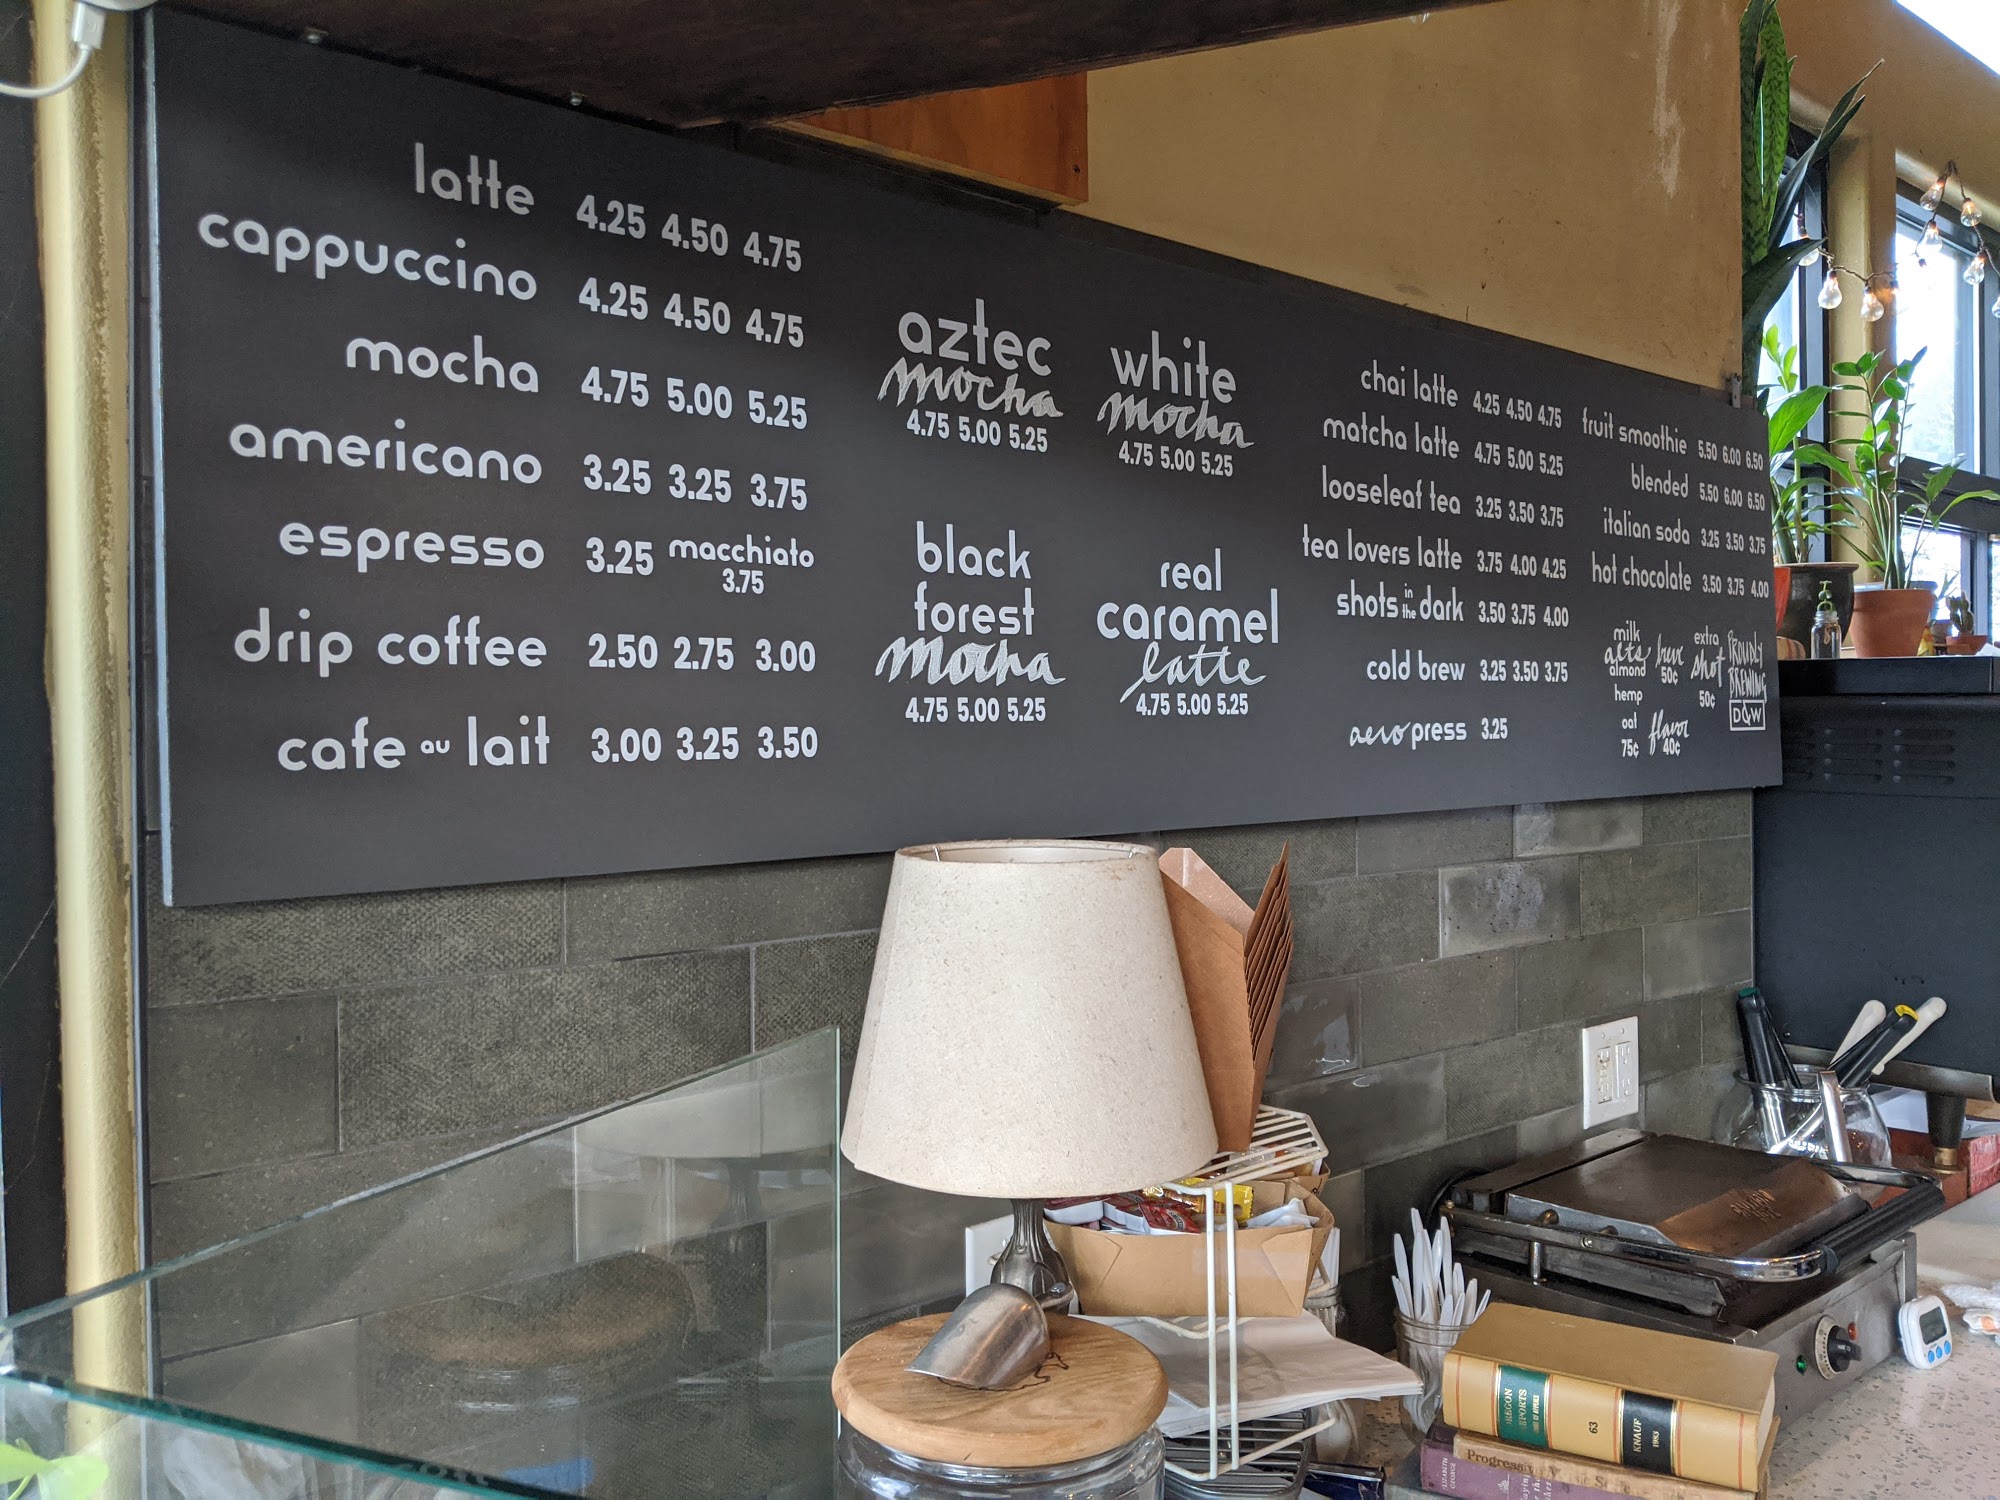 latte 4.25 4.50 4.75
cappuccino 4.25 4.50 4.75
mocha 4.75 5.00 5.25
americano 3.25 3.25 3.75
espresso 3.25 macchiato
3.75
drip coffee 2.50 2.75 3.00
cafe au lait 3.00 3.25 3.50
aztec
mocha
4.75 5.00 5.25
white
mocha
4.75 5.00 5.25
black
forest
mocha
4.75 5.00 5.25
real
caramel
latte
4.75 5.00 5.25
chai latte 4.25 4.50 4.75
matcha latte 4.75 5.00 5.25
looseleaf tea 3.25 3.50 3.75
tea lovers latte 3.75 4.00 4.25
shots in the dark 3.50 3.75 4.00
cold brew 3.25 3.50 3.75
aeropress 3.25
fruit smoothie 5.50 6.00 6.50
blended 5.50 6.00 6.50
italian soda 3.25 3.50 3.75
hot chocolate 3.50 3.75 4.00
milk
alts
almond
hemp
oat
75¢
breve
50¢
flavor
40¢
extra
shot
50¢
PROUDLY
BREWING
D&W
OREGON
REPORTS
63
KNAUF
1983
ELIZABETH
GEORGE